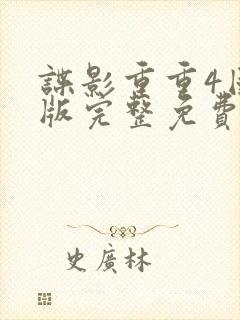 諜影重重4
版完整免費
史廣林